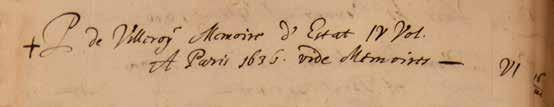 + P de Villeroÿ Memoire d'Estat IV Vol.
A Paris 1636. vide Memoires — VI